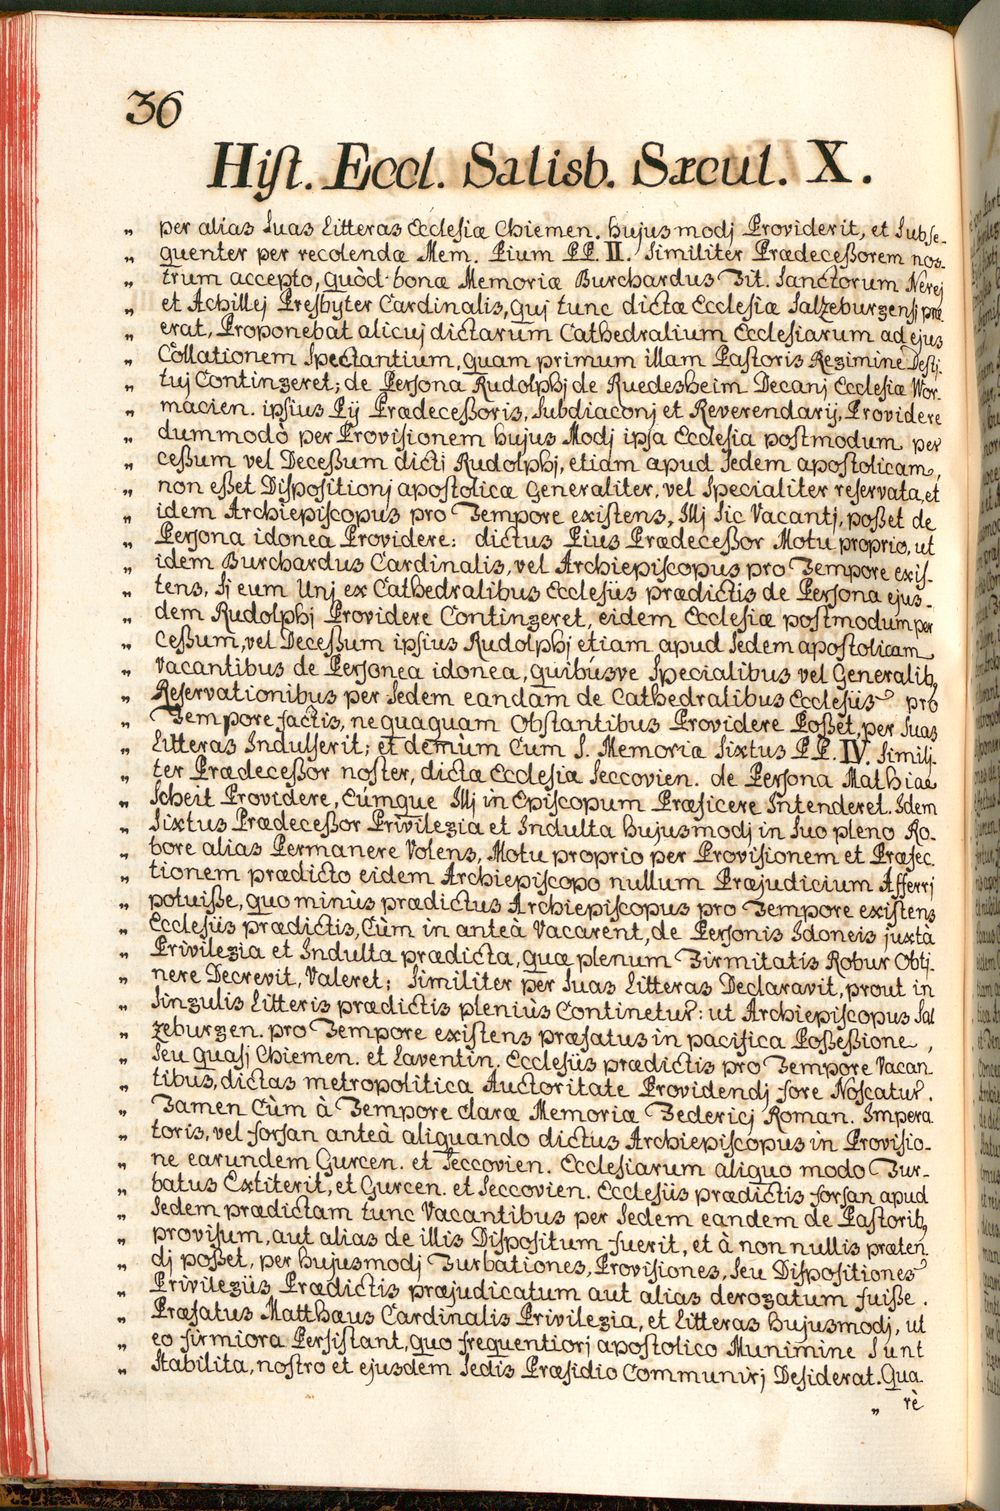 36
Hist. Eccl. Salisb. Sæcul. X.
„ per alias suas Litteras Ecclesiæ Chiemen. hujus modj Providerit, et Subse-
„ quenter per recolendæ Mem. Pium PP. II. Similiter Prædeceßorem nos-
„ trum accepto, quòd bonæ Memoriæ Burchardus Tit. Sanctorum Nerej
„ et Achillej Presbyter Cardinalis, Quj tunc dictæ Ecclesiæ Salzeburgensj præ
„ erat, Proponebat alicuj dictarum Cathedralium Ecclesiarum ad ejus
„ Collationem Spectantium, quam primum illam Pastoris Regimine Destj-
„ tuj Contingeret; de Persona Rudolphj de Ruedesheim Decanj Ecclesiæ Wor-
„ macien. ipsius Pij Prædeceßoris, Subdiaconj et Reverendarij, Providere
„ dummodò per Provisionem hujus Modj ipsa Ecclesia postmodum per
„ ceßum vel Deceßum dicti Rudolphj, etiam apud Sedem apostolicam,
„ non eßet Dispositionj apostolicæ Generaliter, vel Specialiter reservata, et
„ idem Archiepiscopus pro Tempore existens, Illj Sic Vacantj, poßet de
„ Persona idonea Providere: dictus Pius Prædeceßor Motu proprio, ut
„ idem Burchardus Cardinalis, vel Archiepiscopus pro Tempore exis-
„ tens, Sj eum Unj ex Cathedralibus Ecclesiis prædictis de Persona ejus-
„ dem Rudolphj Providere Contingeret, eidem Ecclesiæ postmodum per
„ Ceßum, vel Deceßum ipsius Rudolphj etiam apud Sedem apostolicam
„ Vacantibus de Personea idonea, quibusve Specialibus vel Generalib,
„ Reservationibus per Sedem eandam de Cathedralibus Ecclesiis pro
„ Tempore factis, nequaquam Obstantibus Providere Poßet, per Suas
„ Litteras Indulserit; et demùm Cum S. Memoriæ Sixtus PP. IV. Similj-
„ ter Prædeceßor noster, dictæ Ecclesiæ Seccovien. de Persona Mathiae
„ Scheit Providere, Eúmque Illj in Episcopum Præficere Intenderet. Idem
„ Sixtus Prædeceßor Privilegia et Indulta hujusmodj in Suo pleno Ro-
„ bore alias Permanere Volens, Motu proprio per Provisionem et Præfec
„ tionem prædicto eidem Archiepiscopo nullum Præjudicium Afferrj
„ potuiße, quo minùs prædictus Archiepiscopus pro Tempore existens
„ Ecclesiis prædictis, Cùm in anteà Vacarent, de Personis Idoneis juxtà
„ Privilegia et Indulta prædicta, quæ plenum Firmitatis Robur Obtj-
„ nere Decrevit, Valeret; Similiter per Suas Litteras Declaravit, prout in
„ Singulis Litteris prædictis pleniùs Continetur: ut Archiepiscopus Sal
„ zeburgen. pro Tempore existens præfatus in pacifica Poßeßione,
„ Seu quasj Chiemen. et Laventin. Ecclesiis prædictis pro Tempore Vacan
„ tibus, dictas metropolitica Auctoritate Providendj fore Noscatur.
„ Tamen Cùm à Tempore claræ Memoriæ Federicj Roman. Impera
„ toris, vel forsan anteà aliquando dictus Archiepiscopus in Provisio-
„ ne earundem Gurcen. et Seccovien. Ecclesiarum aliquo modo Tur-
„ batus Extiterit, et Gurcen. et Seccovien. Ecclesiis prædictis forsan apud
„ Sedem prædictam tunc Vacantibus per Sedem eandem de Pastorib,
„ provisum, aut alias de illis Dispositum fuerit, et à non nullis præten
„ dj poßet, per hujusmodj Turbationes, Provisiones, Seu Dispositiones
„ Privilegiis Prædictis præjudicatum aut alias derogatum fuiße.
„ Præfatus Matthæus Cardinalis Privilegia, et Litteras hujusmodj, ut
„ eo firmiora Persistant, quo frequentiorj apostolico Munimine Sunt
„ Stabilita, nostro et ejusdem Sedis Præsidio Communirj Desiderat. Qua
„ rè